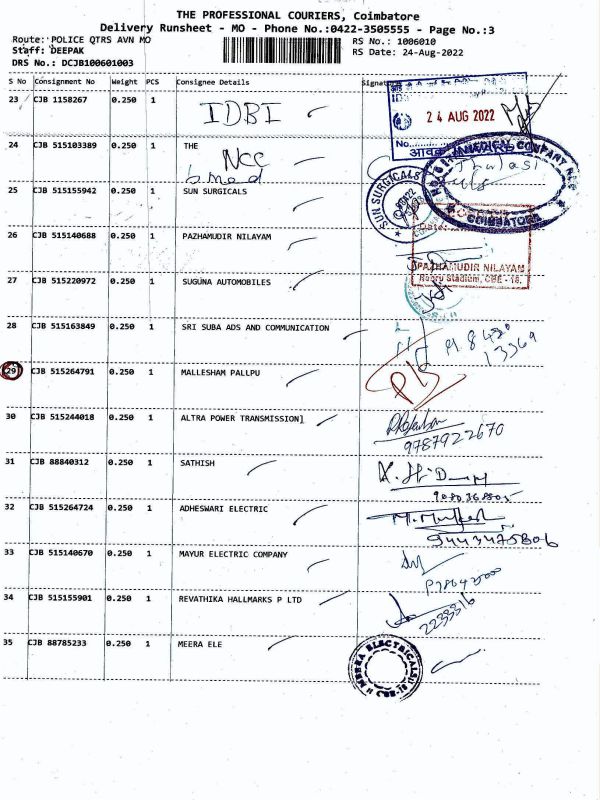 THE PROFESSIONAL COURIERS, Coimbatore
Delivery Runsheet - MO - Phone No.:0422-3505555 - Page No.:3
Route: POLICE QTRS AVN MO
Staff: DEEPAK
DRS No.: DCJB100601003
RS No.: 1006010
RS Date: 24-Aug-2022
S No Consignment No Weight PCS Consignee Details Signat
23 CJB 1158267 0.250 1 IDBI
24 AUG 2022
No.
24 CJB 515103389 0.250 1 THE NCC
b.med
MEDICAL COMPANY
COIMBATORE
25 CJB 515155942 0.250 1 SUN SURGICALS
SUN SURGICALS
26 CJB 515140688 0.250 1 PAZHAMUDIR NILAYAM
Date:
PAZHAMUDIR NILAYAM
Nehru Stadium, CBE - 18.
27 CJB 515220972 0.250 1 SUGUNA AUTOMOBILES
28 CJB 515163849 0.250 1 SRI SUBA ADS AND COMMUNICATION
13369
29 CJB 515264791 0.250 1 MALLESHAM PALLPU
30 CJB 515244018 0.250 1 ALTRA POWER TRANSMISSION]
9787922670
31 CJB 88840312 0.250 1 SATHISH
32 CJB 515264724 0.250 1 ADHESWARI ELECTRIC
9443475806
33 CJB 515140670 0.250 1 MAYUR ELECTRIC COMPANY
34 CJB 515155901 0.250 1 REVATHIKA HALLMARKS P LTD
2233316
35 CJB 88785233 0.250 1 MEERA ELE
MEERA ELECTRICALS